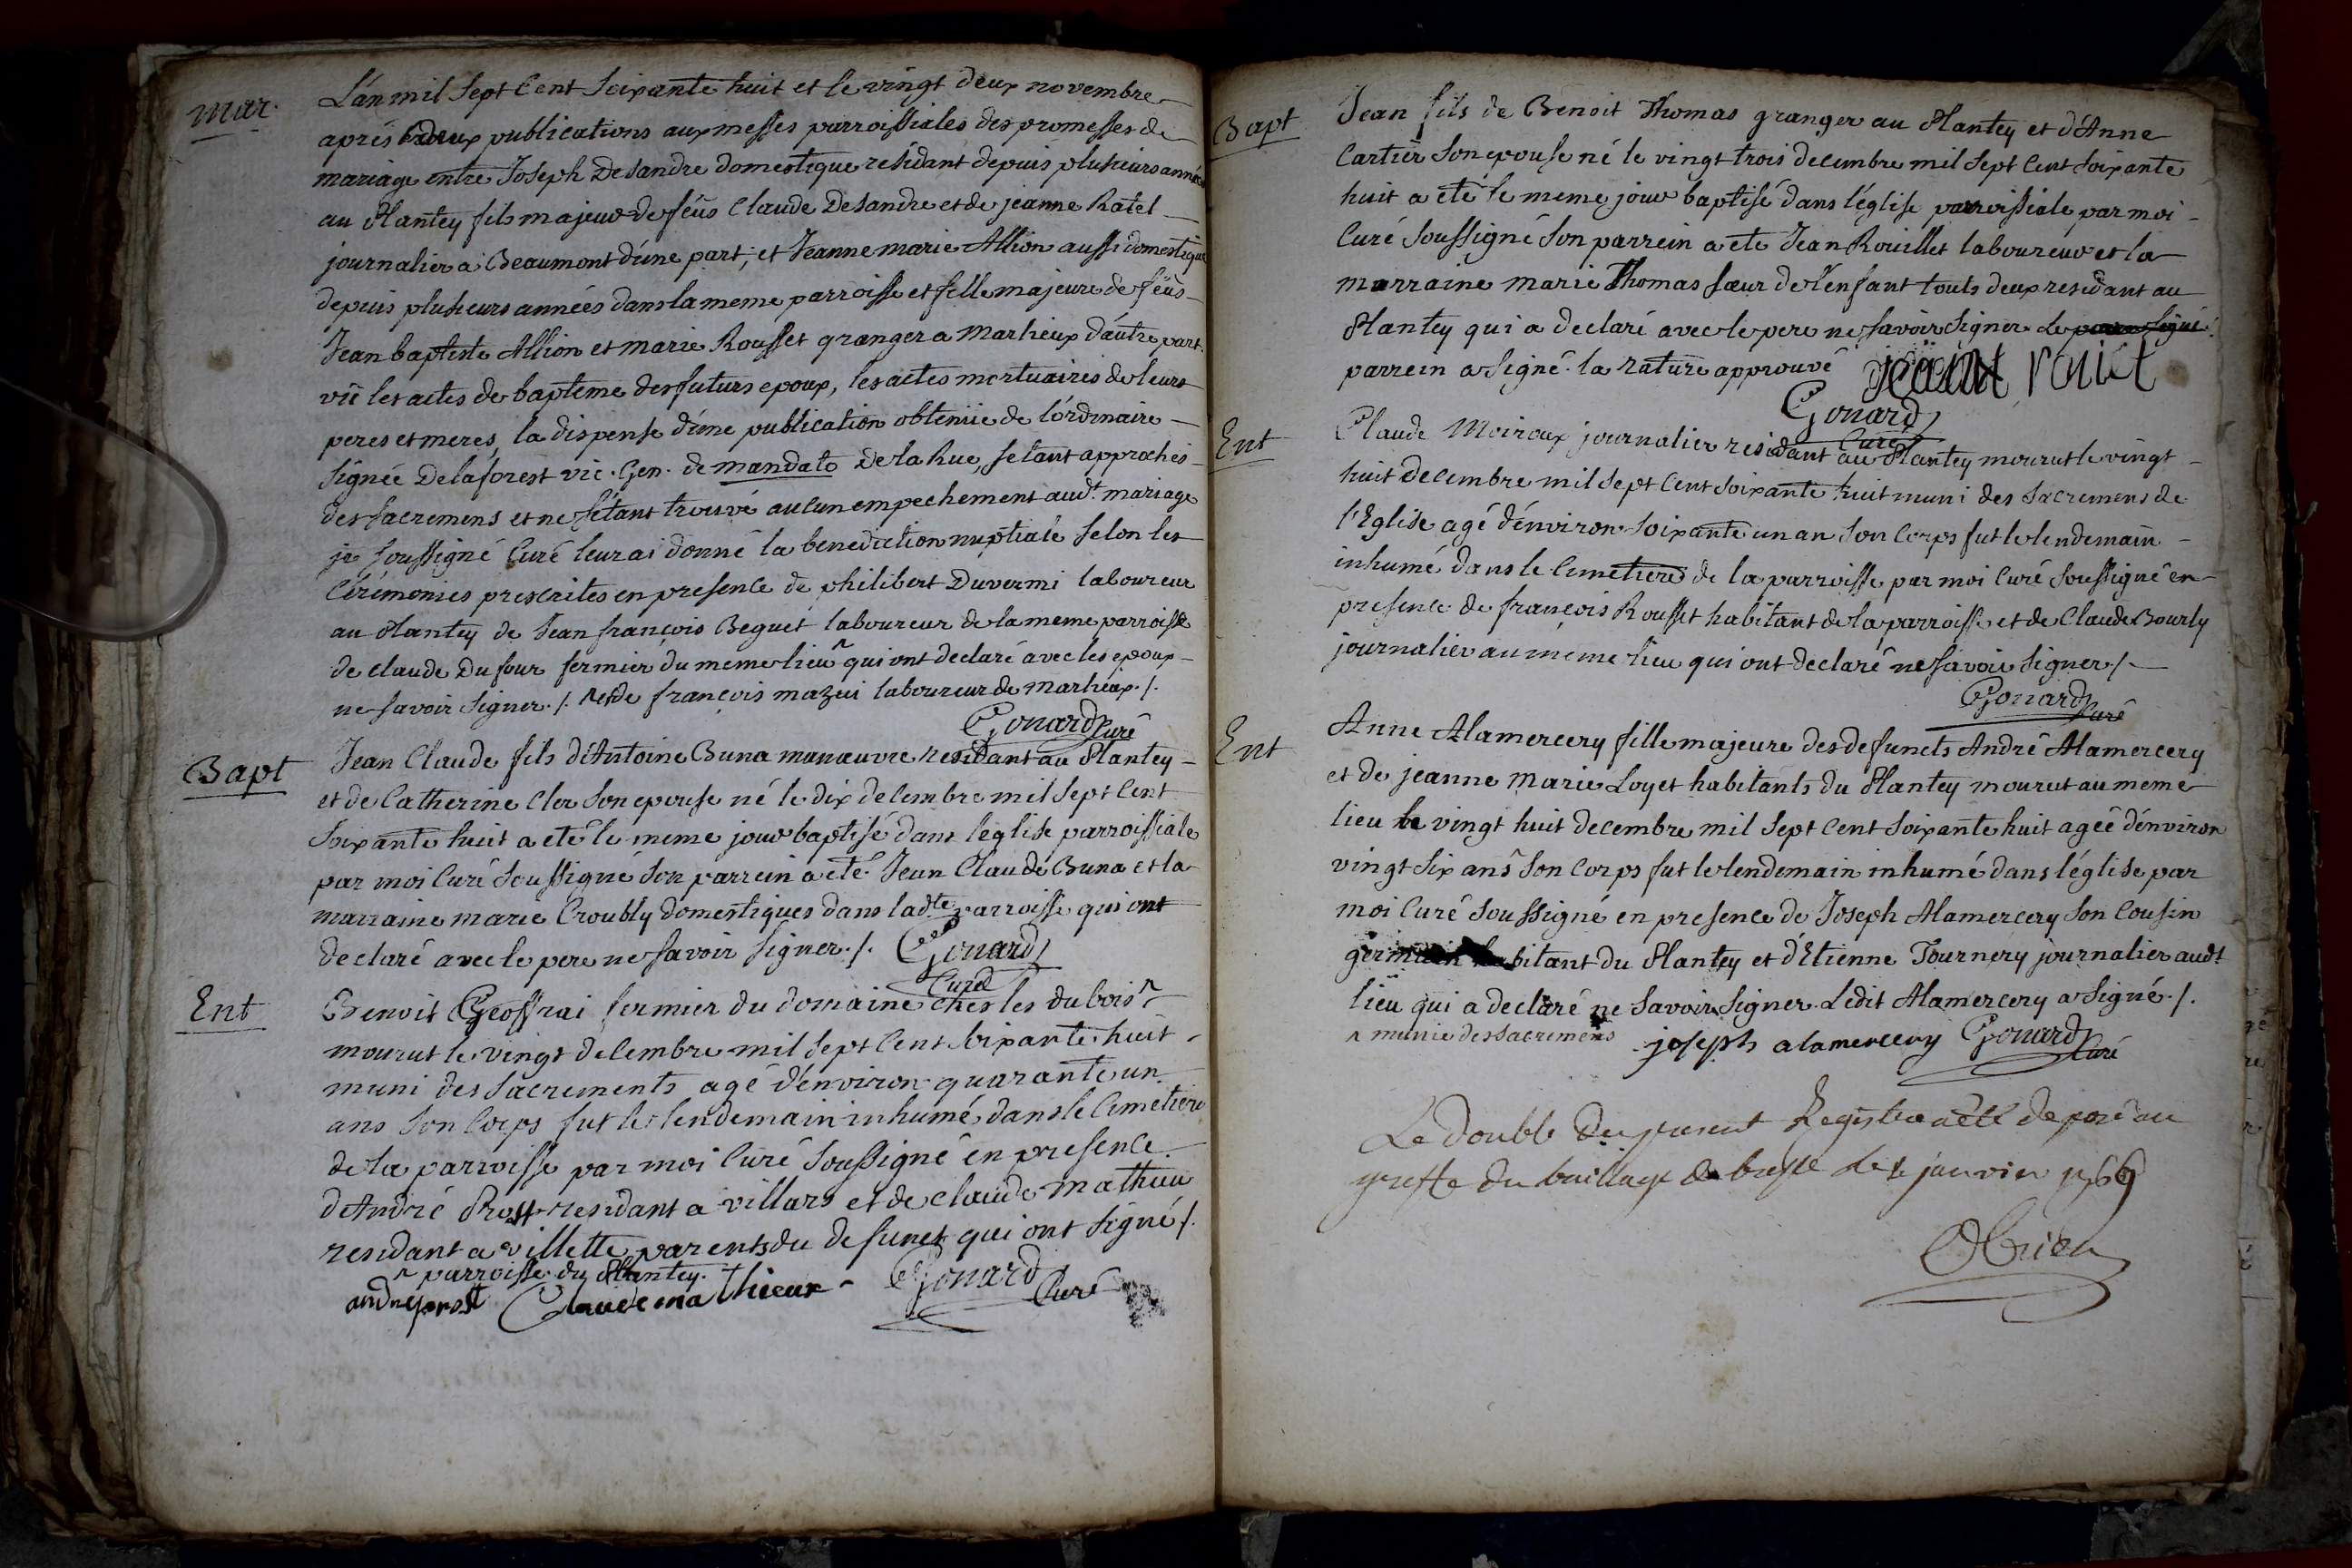 mar.
L'an mil sept cent soixante huit et le vingt deux novembre
aprés deux publications aux messes parroissiales des promesses de
mariage entre Joseph Desandre domestique residant depuis plusieurs années
au Plantey fils majeur de feüs Claude Desandre et de jeanne Ratel
journalier a Beaumont d'une part, et Jeanne marie Allion aussi domestique
depuis plusieurs années dans la meme parroisse et fille majeure de feüs
Jean baptiste Allion et marie Rousset granger a Marlieux d'autre part.
vû les actes de bapteme des futurs epoux, les actes mortuaires de leurs
peres et meres, la dispense d'une publication obtenüe de l'ordinaire
signée Delaforest vic. Gen. de mandato De la Rue, s'etant approchés
des sacremens et ne s'etant trouvé aucun empechement audt. mariage
je soussigné Curé leur ai donné la benediction nuptiale selon les
Cérémonies prescrites en presence de philibert Duvermi laboureur
au Plantey de Jean françois Beguet laboureur de la meme parroisse
de claude Dufour fermier du meme lieu ^ qui ont declaré avec les epoux
ne savoir signer ./. ^ et de françois mazui laboureur de Marlieux ./.
Gonard Curé
Bapt
Jean Claude fils d'Antoine Buna manœuvre residant au Plantey
et de Catherine Cler son epouse né le dix decembre mil sept cent
soixante huit a eté le meme jour baptisé dans l'eglise parroissiale
par moi Curé soussigné son parrein a eté Jean Claude Buna et la
marraine marie Croubly domestiques dans ladte parroisse qui ont
declaré avec le pere ne savoir signer ./. Gonard
Curé
Ent
Benoit Geoffrai fermier du domaine Ches les dubois ^
mourut le vingt decembre mil sept cent soixante huit
muni des sacrements agé d'environ quarante un
ans son corps fut le lendemain inhumé dans le Cimetiere
de la parroisse par moi Curé soussigné en presence
d'André Prost residant a villars et de claude mathieu
residant a villette parents du defunct qui ont signé ./.
^ parroisse du Plantey.
andre prost Claude mathieux Gonard Curé
Bapt
Jean fils de Benoit Thomas granger au Plantey et d'Anne
Cartier son epouse né le vingt trois decembre mil sept cent soixante
huit a eté le meme jour baptisé dans l'église parroissiale par moi
Curé soussigné son parrein a eté Jean Rouillet laboureur et la
marraine marie Thomas sœur de l'enfant touts deux residant au
Plantey qui a declaré avec le pere ne savoir signer. Le
parrein a signé. la rature approuvé
Gonard
Curé
Ent
Claude Moiroux journalier residant au Plantey mourut le vingt
huit decembre mil sept cent soixante huit muni des sacremens de
l'Eglise agé d'environ soixante un an son corps fut le lendemain
inhumé dans le cimetiere de la parroisse par moi Curé soussigné en
presence de françois Rousset habitant de la parroisse et de Claude Bourly
journalier au même lieu qui ont declaré ne savoir signer ./.
Gonard Curé
Ent
Anne Alamercery fille majeure des defuncts André Alamercery
et de jeanne marie Loyet habitants du Plantey mourut au meme
lieu le vingt huit decembre mil sept cent soixante huit agée d'environ
vingt six ans ^ son corps fut le lendemain inhumé dans l'église par
moi Curé soussigné en presence de Joseph Alamercery son cousin
germain habitant du Plantey et d'Etienne Tournery journalier audt
lieu qui a declaré ne savoir signer. Ledit Alamercery a signé ./.
^ munie des sacremens joseph alamercery Gonard Curé
Le Double du present Registre a été deposé au
greffe du bailliage de bresse le janvier 1769